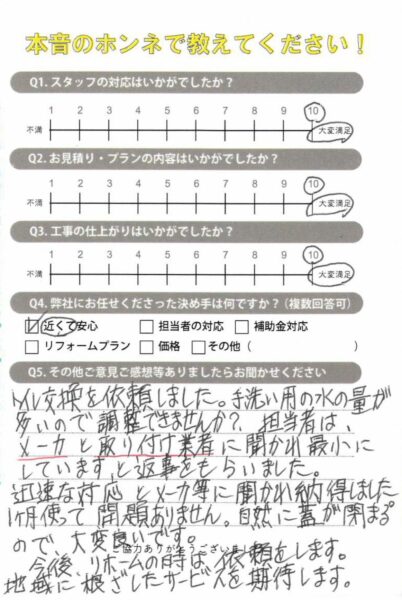 本音のホンネで教えてください！
Q1. スタッフの対応はいかがでしたか？
1 2 3 4 5 6 7 8 9 10
不満 大変満足
Q2. お見積り・プランの内容はいかがでしたか？
1 2 3 4 5 6 7 8 9 10
不満 大変満足
Q3. 工事の仕上がりはいかがでしたか？
1 2 3 4 5 6 7 8 9 10
不満 大変満足
Q4. 弊社にお任せくださった決め手は何ですか？（複数回答可）
近くで安心 担当者の対応 補助金対応
リフォームプラン 価格 その他（ ）
Q5. その他ご意見ご感想等ありましたらお聞かせください
交換を依頼しました。き洗い用の水の量が
多いので調整できませんか？、担当者は、
メーカと取り付け業者に聞かれ最小に
しています、と返事をもらいました。
迅速な対応とメーカ等に聞かれ納得しました
1ヶ月使って問題ありません。自然に蓋が閉まる
ので、大変良いです。
ご協力ありがとうござい
今後、リホームの時は、依頼をします。
地域に根ざしたサービスを期待します。